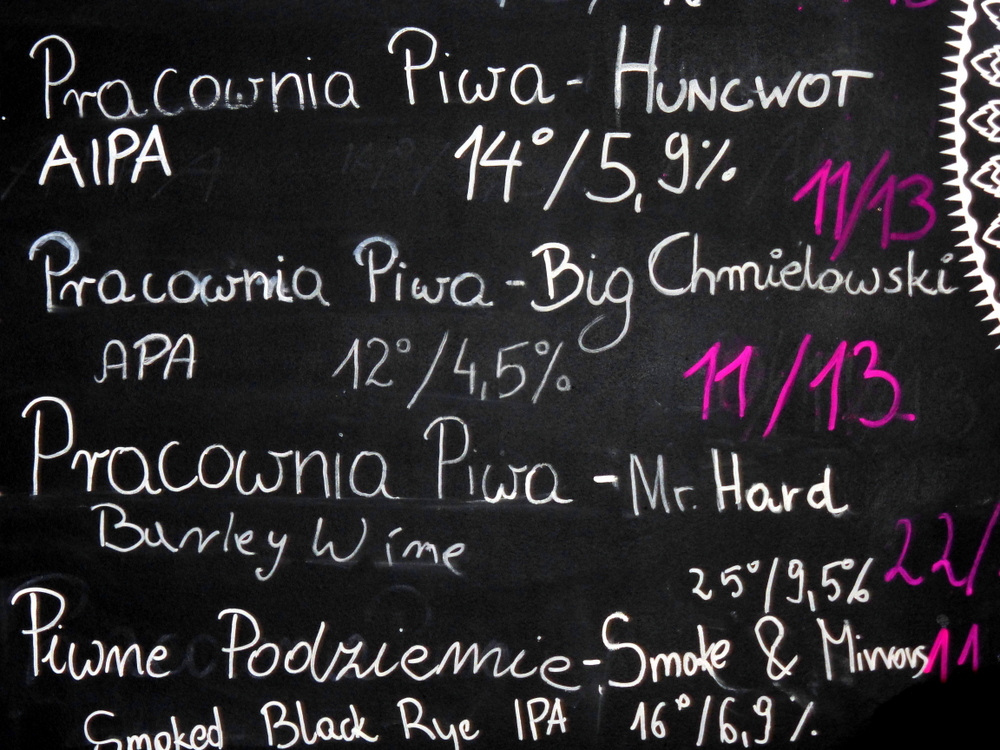 Pracownia Piwa - HUNCWOT
AIPA 14°/5,9% 11/13
Pracownia Piwa - Big Chmielowski
APA 12°/4,5% 11/13
Pracownia Piwa - Mr. Hard
Barley Wine
25°/9,5% 22/
Piwne Podziemie - Smoke & Mirrors 11
Smoked Black Rye IPA 16°/6,9%